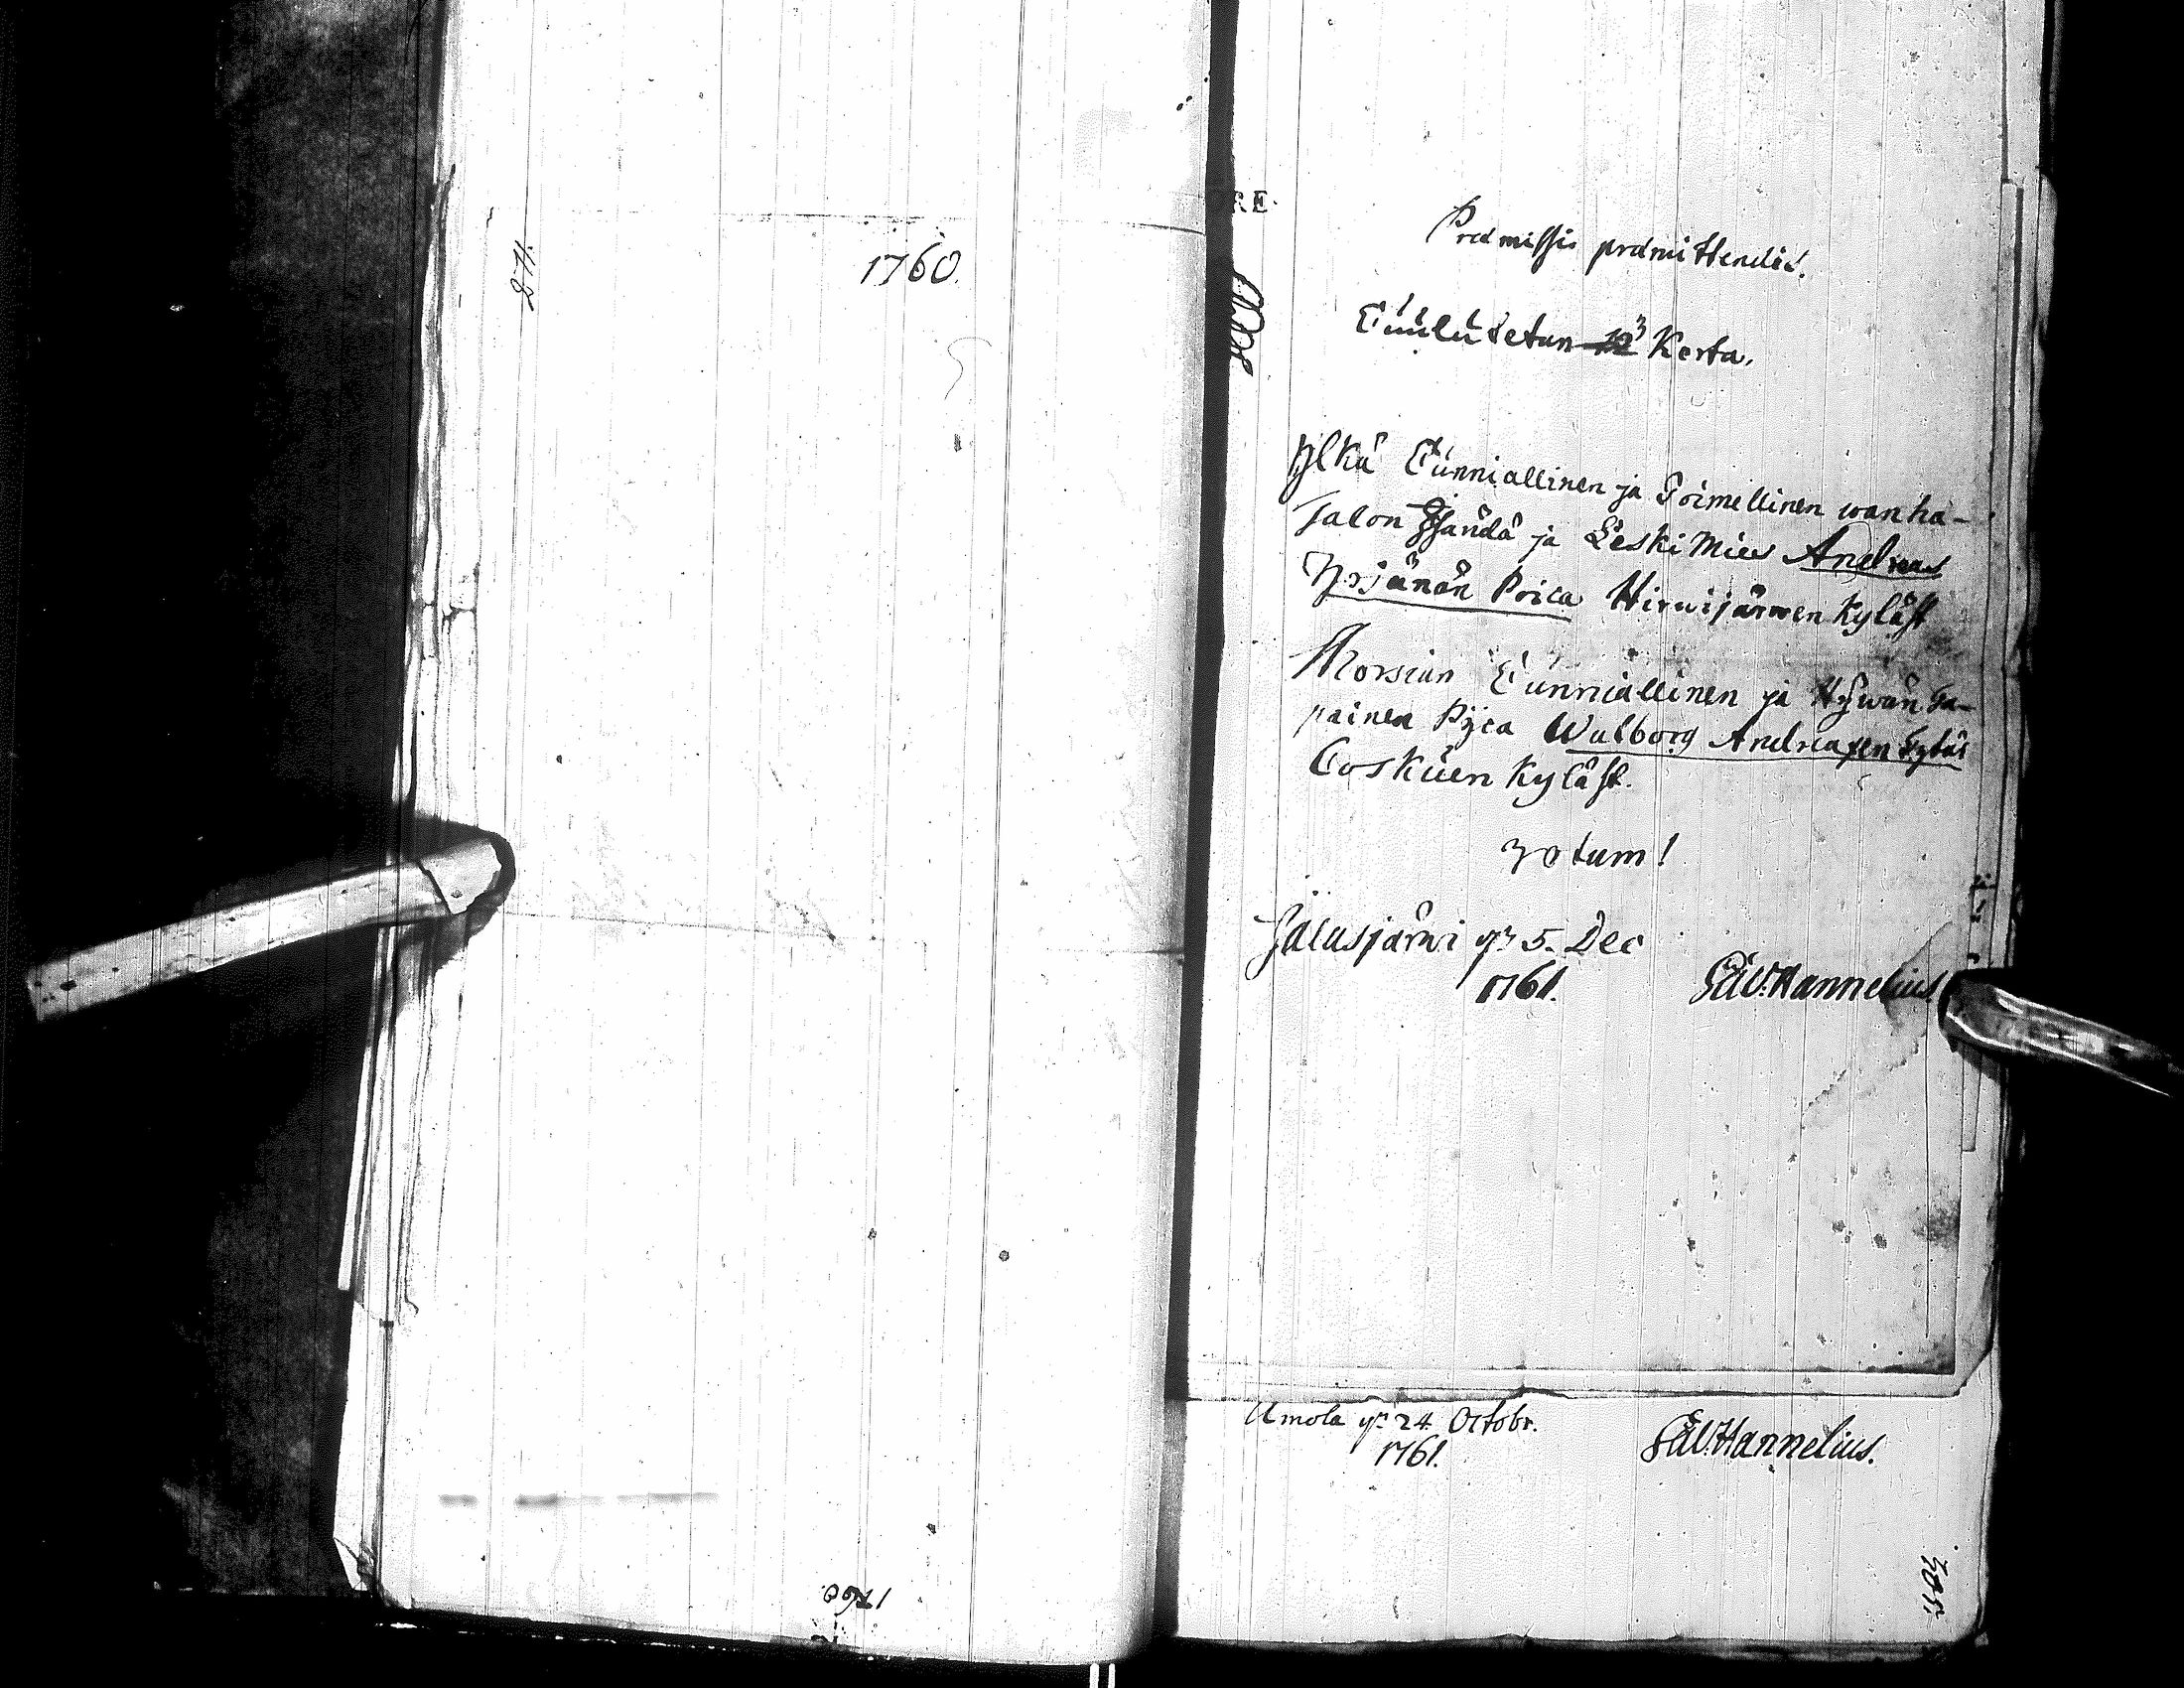 274.
1760.
1760.
RE.
Præmissis præmittendis.
Cuulutetan 3 Kerta.
Ylkä Cunniallinen ja Toimellinen wanha-
Talon Isändä ja Leski Mies Andreas
Yrjänän Poica Hirwijärwen Kyläst
Morsian Cunniallinen ja Hywän Ta-
painen Pijca Walborg Andreaxen Tytär
Coskuen Kyläst.
Votum!
Jalasjärwi dn 5. Dec
1761.
Gäv. Hannelius.
Amola dn 24. Octobr.
1761.
Gäv. Hannelius.